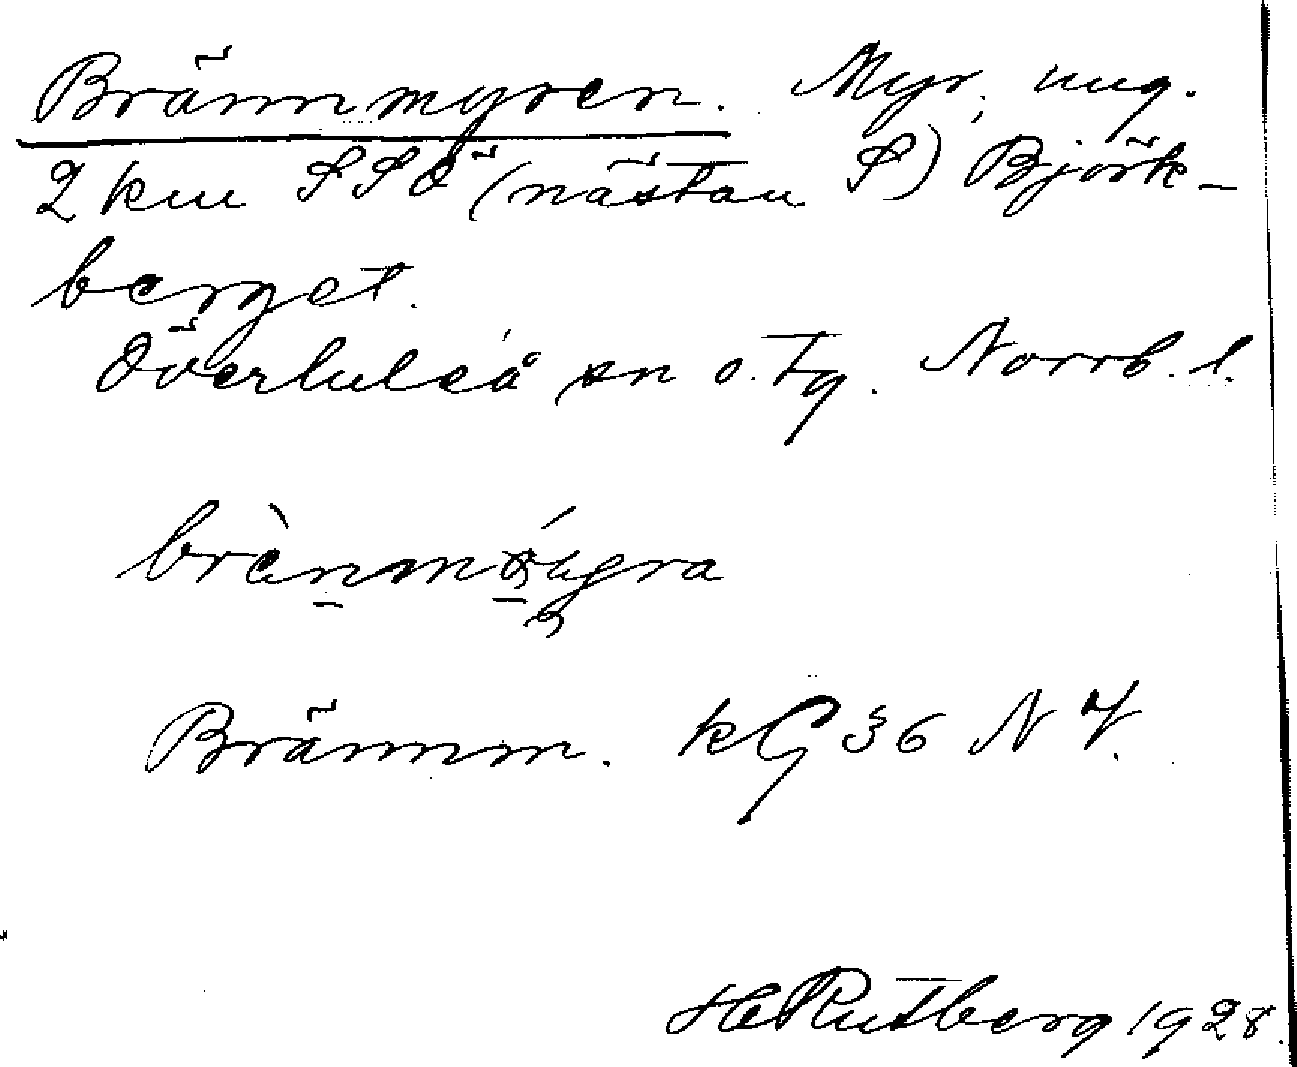 Brännmyren. Myr, ung.
2 km SSÖ (nästan S) Björk-
berget.
Överluleå sn o. tg. Norrb. l.
Brännm. kG 36 NV.
H Rutberg 1928.